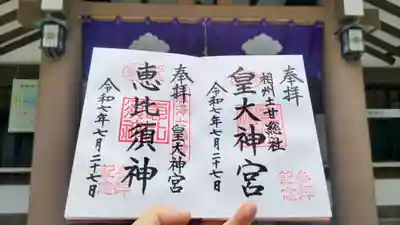 奉拝
相州土甘総社
皇大神宮
令和七年七月二十七日
奉拝
皇大神宮
恵比須神
令和七年七月二十七日